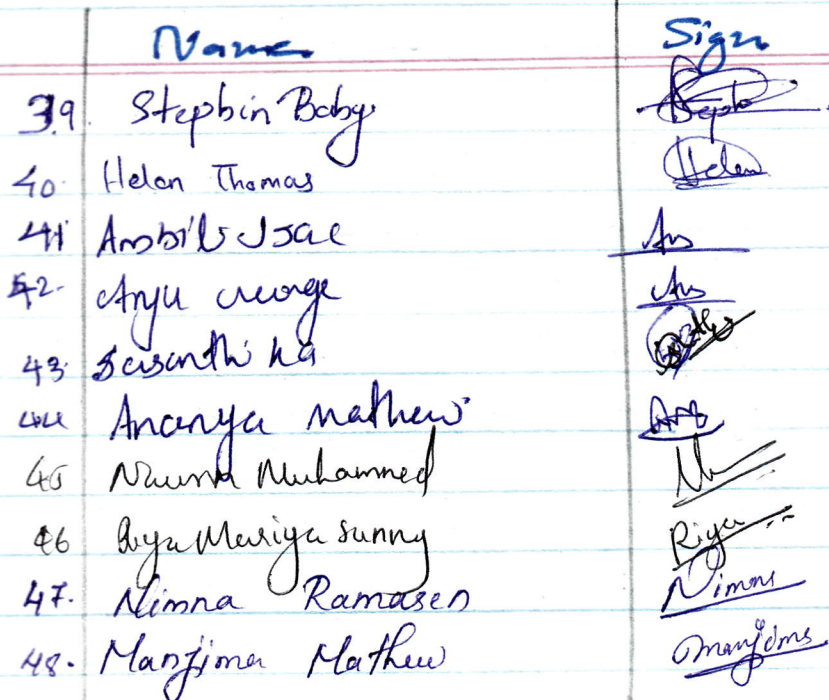 Name Sign
39. Stephin Baby
40. Helan Thomas Helen
41 Ansbil Isac Ans
42. Anju George
43.
44 Ananya Mathew
45 Muhammed
46 Riya Mariya Sunny Riya
47. Nimna Ramasen Nimna
48. Manjima Mathew Manjima